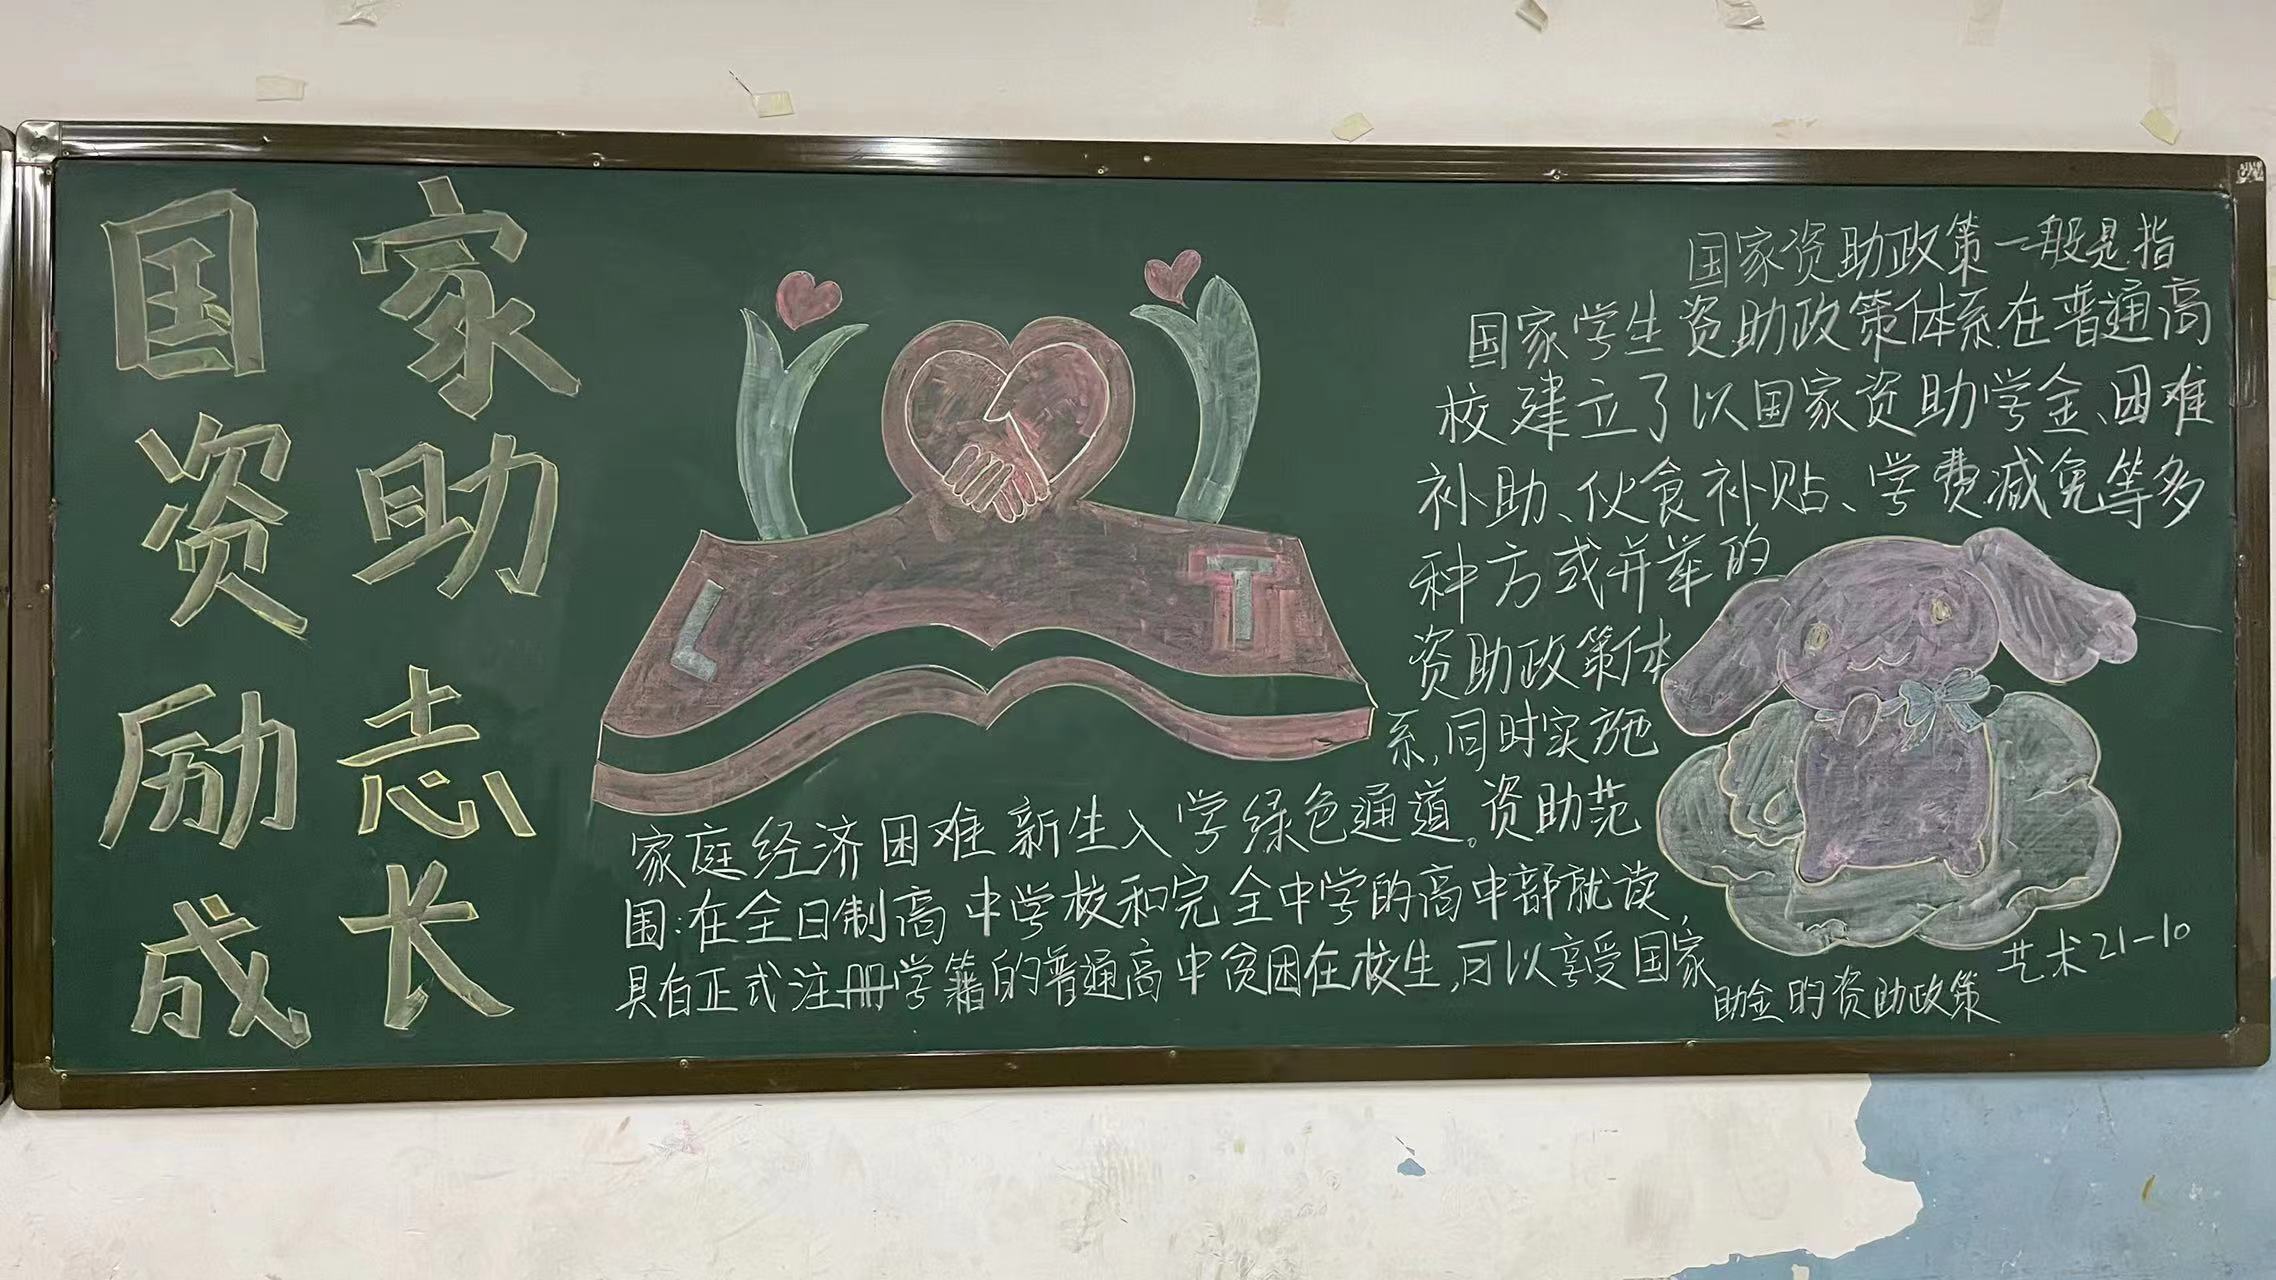 国家
资助
励志
成长
L T
国家资助政策一般是指
国家学生资助政策体系.在普通高
校建立了以国家资助学金、困难
补助、伙食补贴、学费减免等多
种方式并举的
资助政策体
系,同时实施
家庭经济困难新生入学绿色通道。资助范
围:在全日制高中学校和完全中学的高中部就读,
具有正式注册学籍的普通高中贫困在校生,可以享受国家
助金的资助政策
艺术21-10